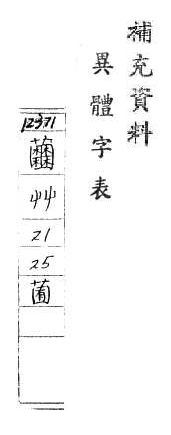 補充資料
異體字表
12371
艸
21
25